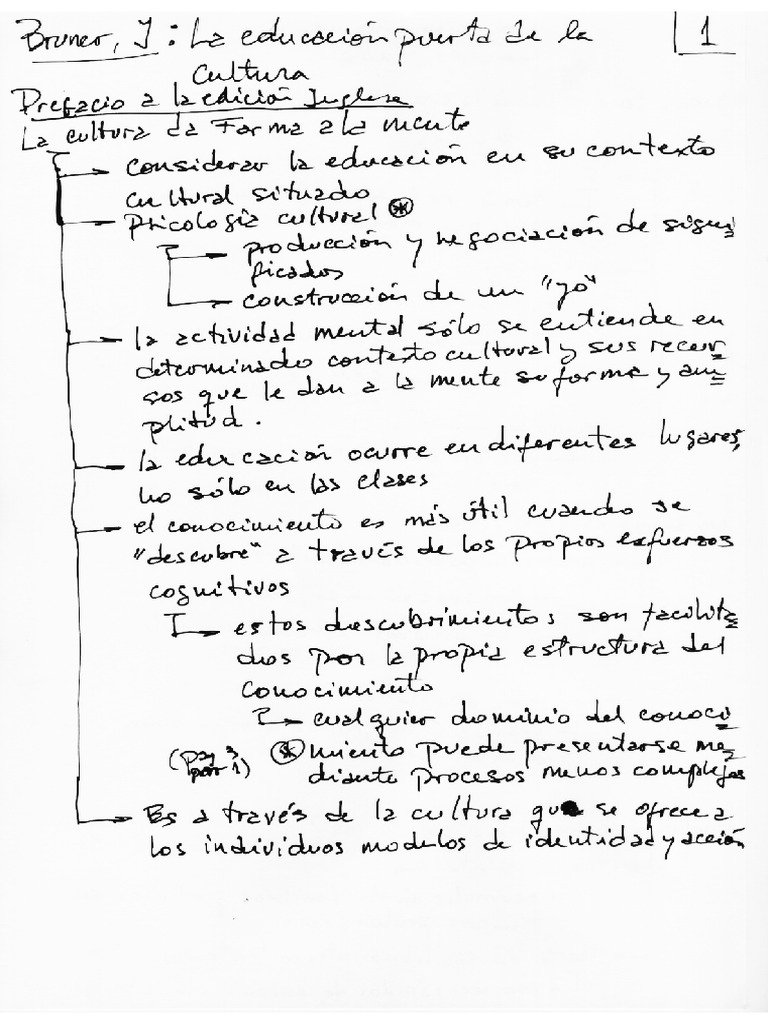 Bruner, J : La educación puerta de la
1
cultura
Prefacio a la edición Inglesa
La cultura da Forma a la mente
considerar la educación en su contexto
cultural situado
Psicología cultural *
producción y negociación de signi
ficados
construcción de un "yo"
la actividad mental sólo se entiende en
determinado contexto cultural y sus recur
sos que le dan a la mente su forma y am
plitud.
la educación ocurre en diferentes lugares,
no sólo en las clases
el conocimiento es más útil cuando se
"descubre" a través de los propios esfuerzos
cognitivos
estos descubrimientos son facilita
dos por la propia estructura del
conocimiento
cualquier dominio del conoci
(pag 3
* miento puede presentarse me
por 1)
diante procesos menos complejos
Es a través de la cultura que se ofrece a
los individuos modelos de identidad y acción